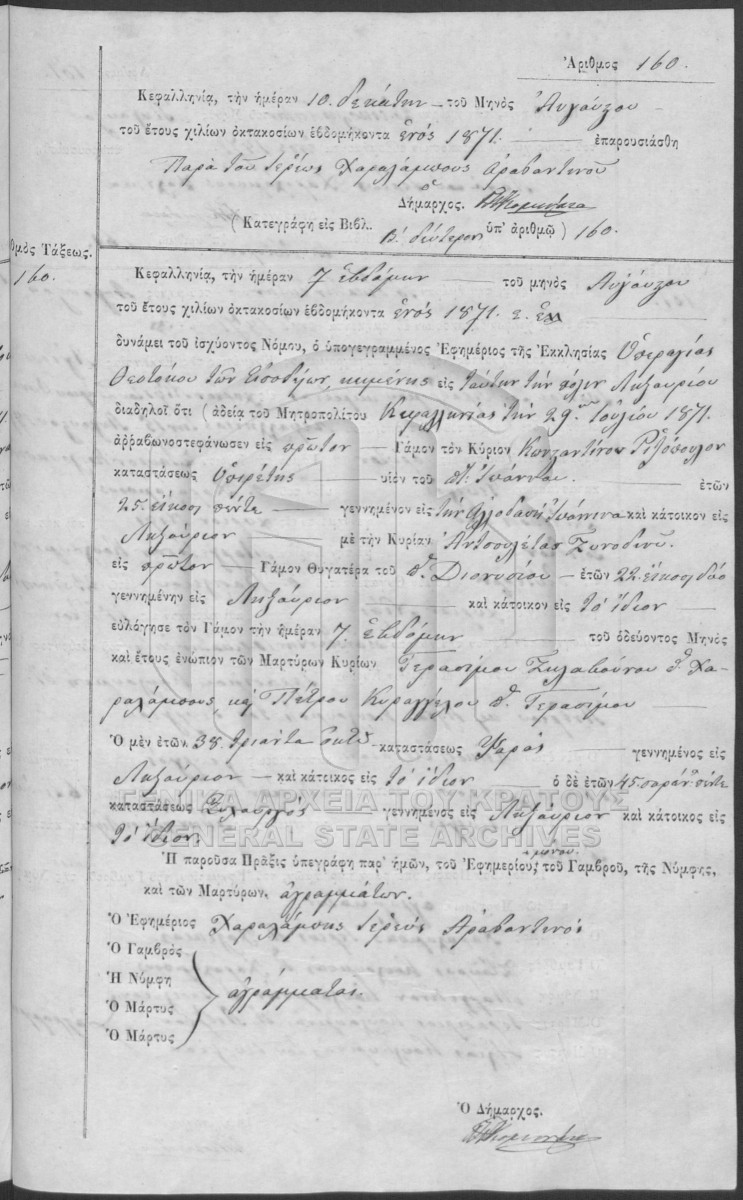 Ἀριθμος 160.
Κεφαλληνίᾳ, τὴν ἡμέραν 10. δεκάτην τοῦ Μηνὸς Αὐγούστου
τοῦ ἔτους χιλίων ὀκτακοσίων ἑβδομήκοντα ἑνός 1871. ἐπαρουσιάσθη
Παρὰ τοῦ Ἱερέως Χαραλάμπους Ἀραβαντινοῦ
Ὁ Δήμαρχος.
(Κατεγράφη εἰς Βιβλ. Β΄ δεύτερον ὑπ' ἀριθμῷ) 160.
θμὸς Τάξεως.
160.
Κεφαλληνίᾳ, τὴν ἡμέραν 7 ἑβδόμην τοῦ μηνὸς Αὐγούστου
τοῦ ἔτους χιλίων ὀκτακοσίων ἑβδομήκοντα ἑνός 1871. ε. Ἐν
δυνάμει τοῦ ἰσχύοντος Νόμου, ὁ ὑπογεγραμμένος Ἐφημέριος τῆς Ἐκκλησίας Ὑπεραγίας
Θεοτόκου τῶν Εἰσοδίων, κειμένης εἰς ταύτην τὴν πόλιν Ληξουρίου
διαδηλοῖ ὅτι (ἀδείᾳ τοῦ Μητροπολίτου Κεφαλληνίας τὴν 29ην Ἰουλίου 1871.
ἀῤῥαβωνοστεφάνωσεν εἰς πρῶτον Γάμον τὸν Κύριον Κωνσταντῖνον Ριζόπουλον
καταστάσεως Ὑπηρέτης υἱὸν τοῦ π. Ἰωάννου. ἐτῶν
25. εἴκοσι πέντε γεννημένον εἰς τὴν Ἀλλοδαπὴν Ἰωάννινα καὶ κάτοικον εἰς
Ληξούριον μὲ τὴν Κυρίαν Ἀντσουλέταν Ξυνοδινοῦ.
εἰς πρῶτον Γάμον Θυγατέρα τοῦ π. Διονυσίου ἐτῶν 22. εἴκοσι δύο
γεννημένην εἰς Ληξούριον καὶ κάτοικον εἰς τὸ ἴδιον
εὐλόγησε τὸν Γάμον τὴν ἡμέραν 7 ἑβδόμην τοῦ ὁδεύοντος Μηνὸς
καὶ ἔτους ἐνώπιον τῶν Μαρτύρων Κυρίων Γερασίμου Σκλαβούνου π. Χα-
ραλάμπους, καὶ Πέτρου Κυραγγέλου π. Γερασίμου
Ὁ μὲν ἐτῶν 38. τριάντα ὀκτὼ καταστάσεως Ψαρᾶς γεννημένος εἰς
Ληξούριον καὶ κάτοικος εἰς τὸ ἴδιον ὁ δὲ ἐτῶν 45. σαράντα πέντε
καταστάσεως Ξυλουργός γεννημένος εἰς Ληξούριον καὶ κάτοικος εἰς
τὸ ἴδιον.
Ἡ παροῦσα Πρᾶξις ὑπεγράφη παρ' ἡμῶν, τοῦ Ἐφημερίου, μόνου τοῦ Γαμβροῦ, τῆς Νύμφης,
καὶ τῶν Μαρτύρων. ἀγραμμάτων.
Ὁ Ἐφημέριος Χαραλάμπης Ἱερεὺς Ἀραβαντινός
Ὁ Γαμβρὸς
Ἡ Νύμφη
Ὁ Μάρτυς
Ὁ Μάρτυς
ἀγράμματοι.
Ὁ Δήμαρχος.
ΓΕΝΙΚΑ ΑΡΧΕΙΑ ΤΟΥ ΚΡΑΤΟΥΣ
GENERAL STATE ARCHIVES